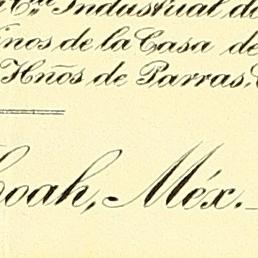 Cía Industrial d
inos de la Casa de
Hnos de Parras,
Coah, Méx.